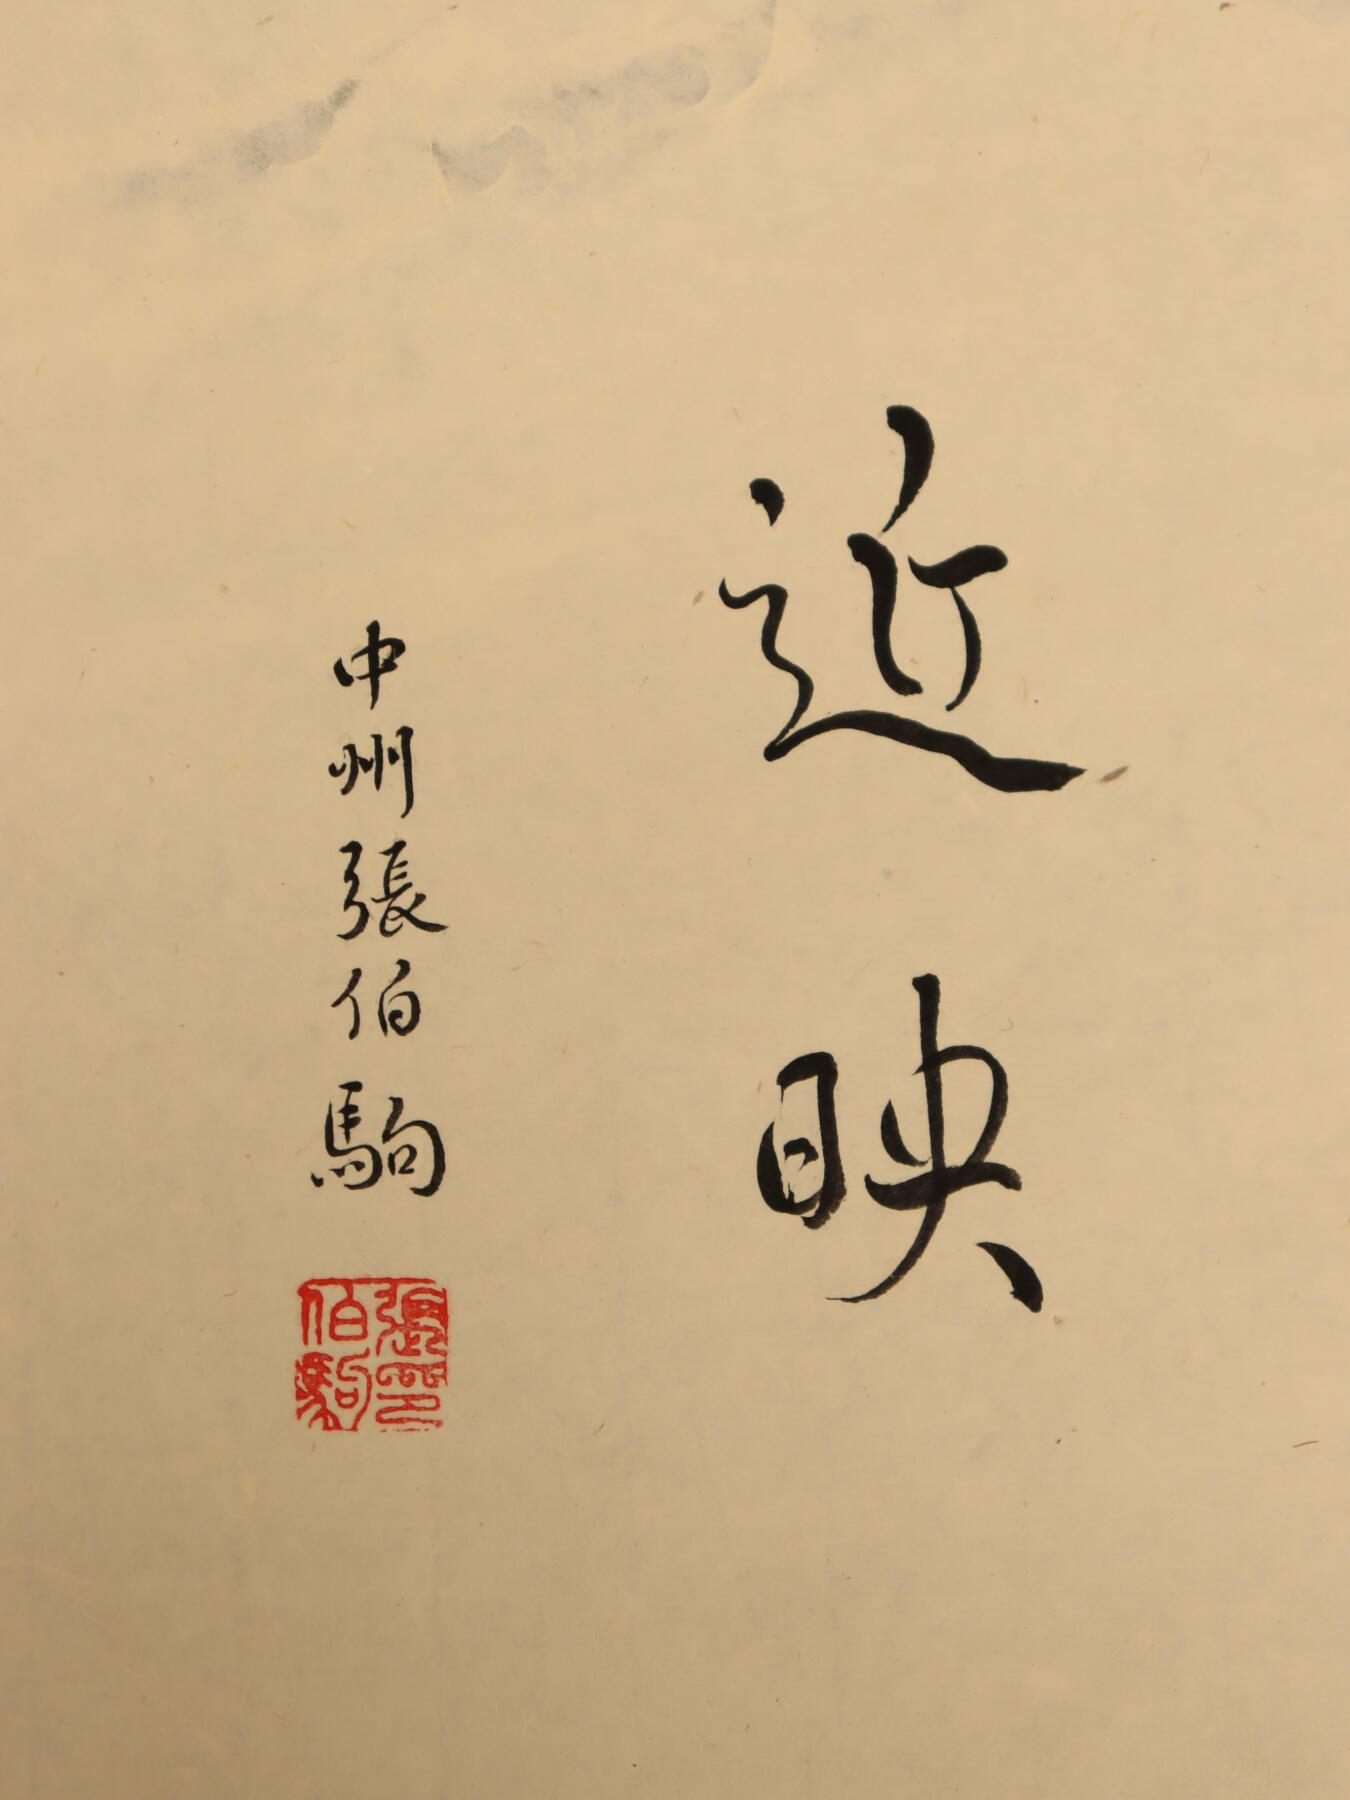 近映
中州張伯駒
張伯駒印